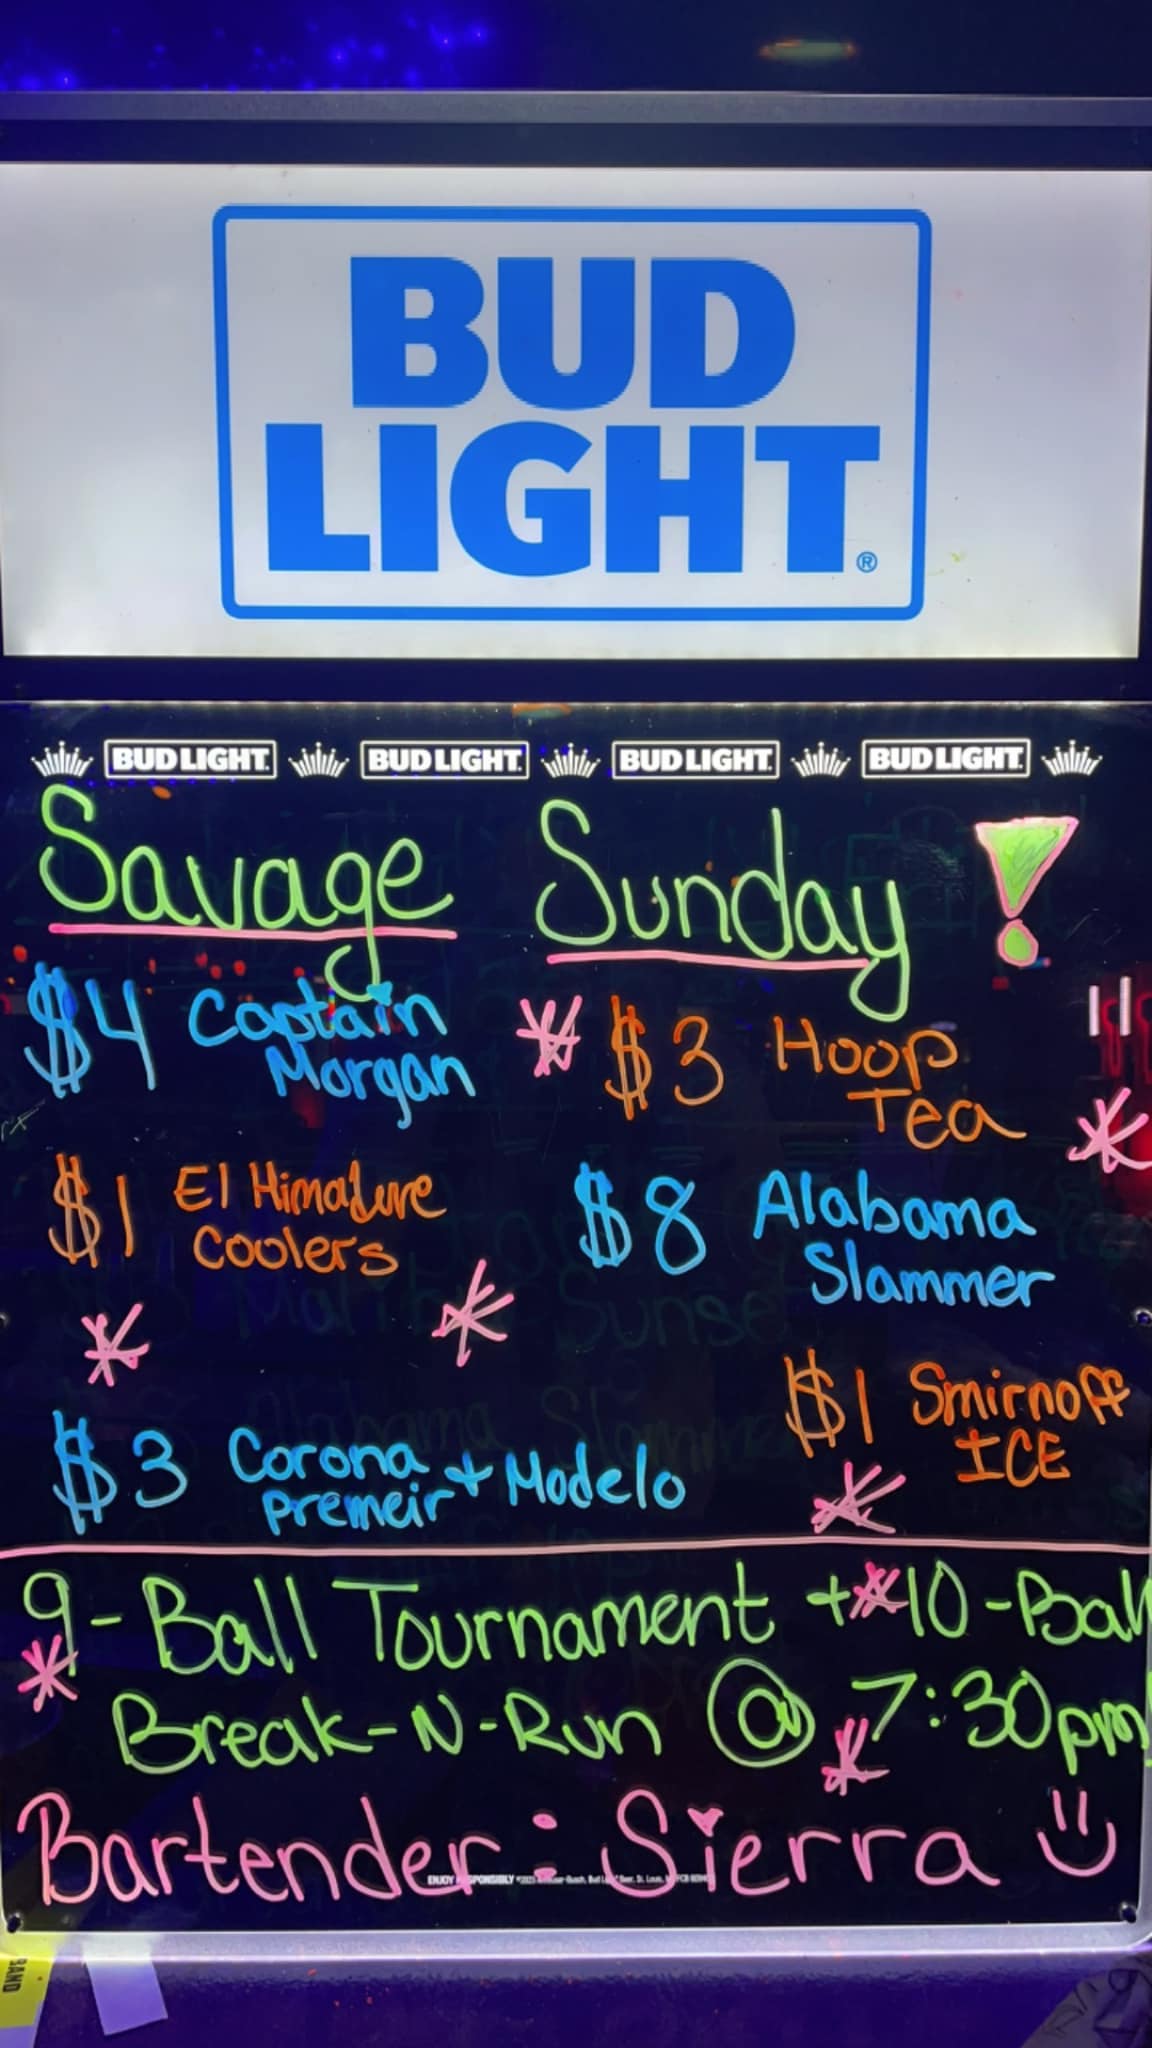 BUD
LIGHT®
BUD LIGHT BUD LIGHT BUD LIGHT BUD LIGHT
Savage Sunday!
$4 Captain
Morgan
$3 Hoop
Tea
$1 El Himadure
Coolers
$8 Alabama
Slammer
$1 Smirnoff
ICE
$3 Corona
premeir + Modelo
9-Ball Tournament + 10-Ball
Break-N-Run @ 7:30pm
Bartender: Sierra
ENJOY RESPONSIBLY
BAND